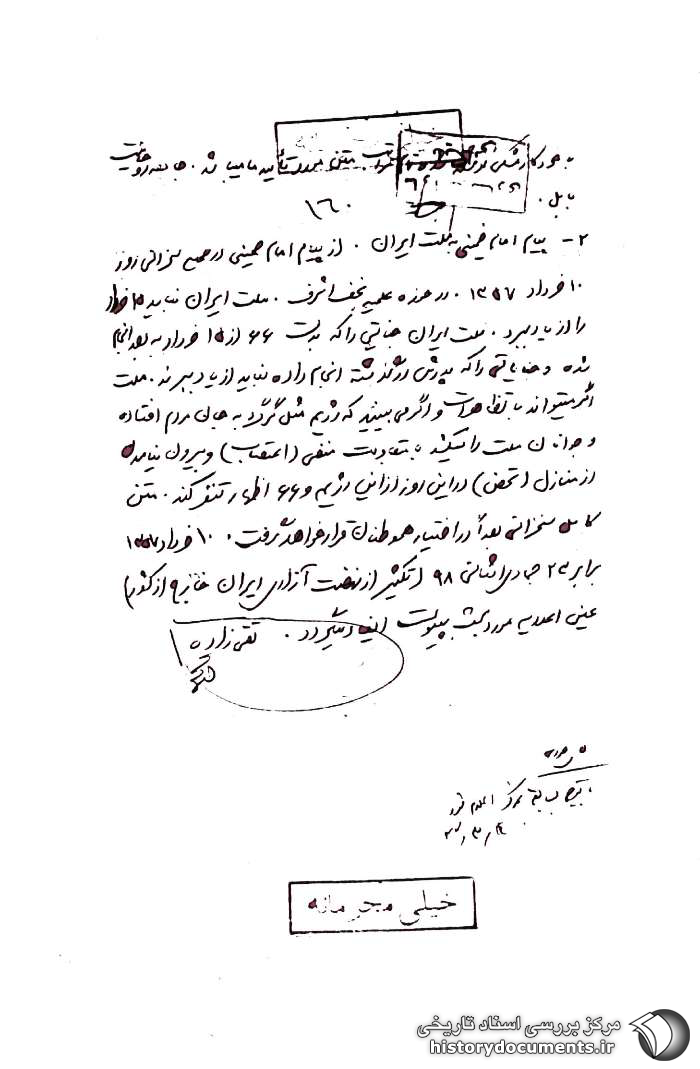 متن مورد تأیید ما میباشد. جامعه روحانیت
بابل.
۱۶۰
۲- پیام امام خمینی به ملت ایران. از پیام امام خمینی در جمع سخرانی روز
۱۰ خرداد ۱۳۵۷. در حوزه علمیه نجف اشرف. ملت ایران نباید ۱۵ خرداد
را از یاد ببرد. ملت ایران جنایتی را که بدست ۶۶ از ۱۵ خرداد به بعد انجام
شده و جنایاتی را که پدرش در گذشته انجام داده نباید از یاد ببرند. ملت
اگر میتواند با تظاهرات و اگر می بینید که رژیم مثل گرگ به جان مردم افتاده
و جوانان ملت را میکشد با مقاومت منفی (اعتصاب) و بیرون نیامدن
از منازل (تحصن) در این روز از این رژیم و ۶۶ اظهار تنفر کند. متن
کامل سخنرانی بعداً در اختیار هموطنان قرار خواهد گرفت. ۱۰ خرداد ۱۳۵۷
برابر ۲۳ جمادی الثانی ۹۸ (تکثیر از نهضت آزادی ایران خارج از کشور)
عین اعلامیه مورد بحث به پیوست ایفاد میگردد. تقی زاده
خیلی محرمانه
مرکز بررسی اسناد تاریخی
historydocuments.ir